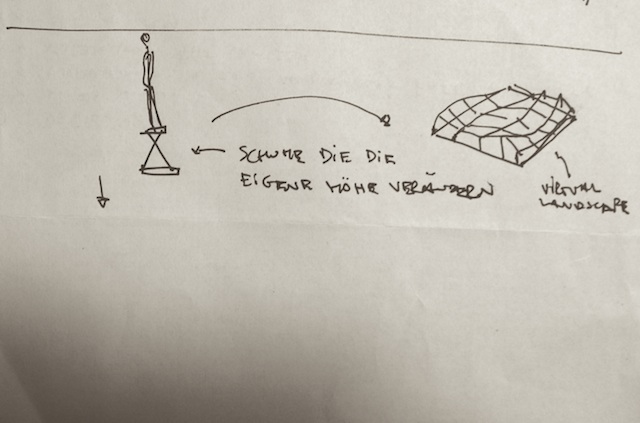 SCHUHE DIE DIE
EIGENE HÖHE VERÄNDERN
VIRTUAL
LANDSCAPE